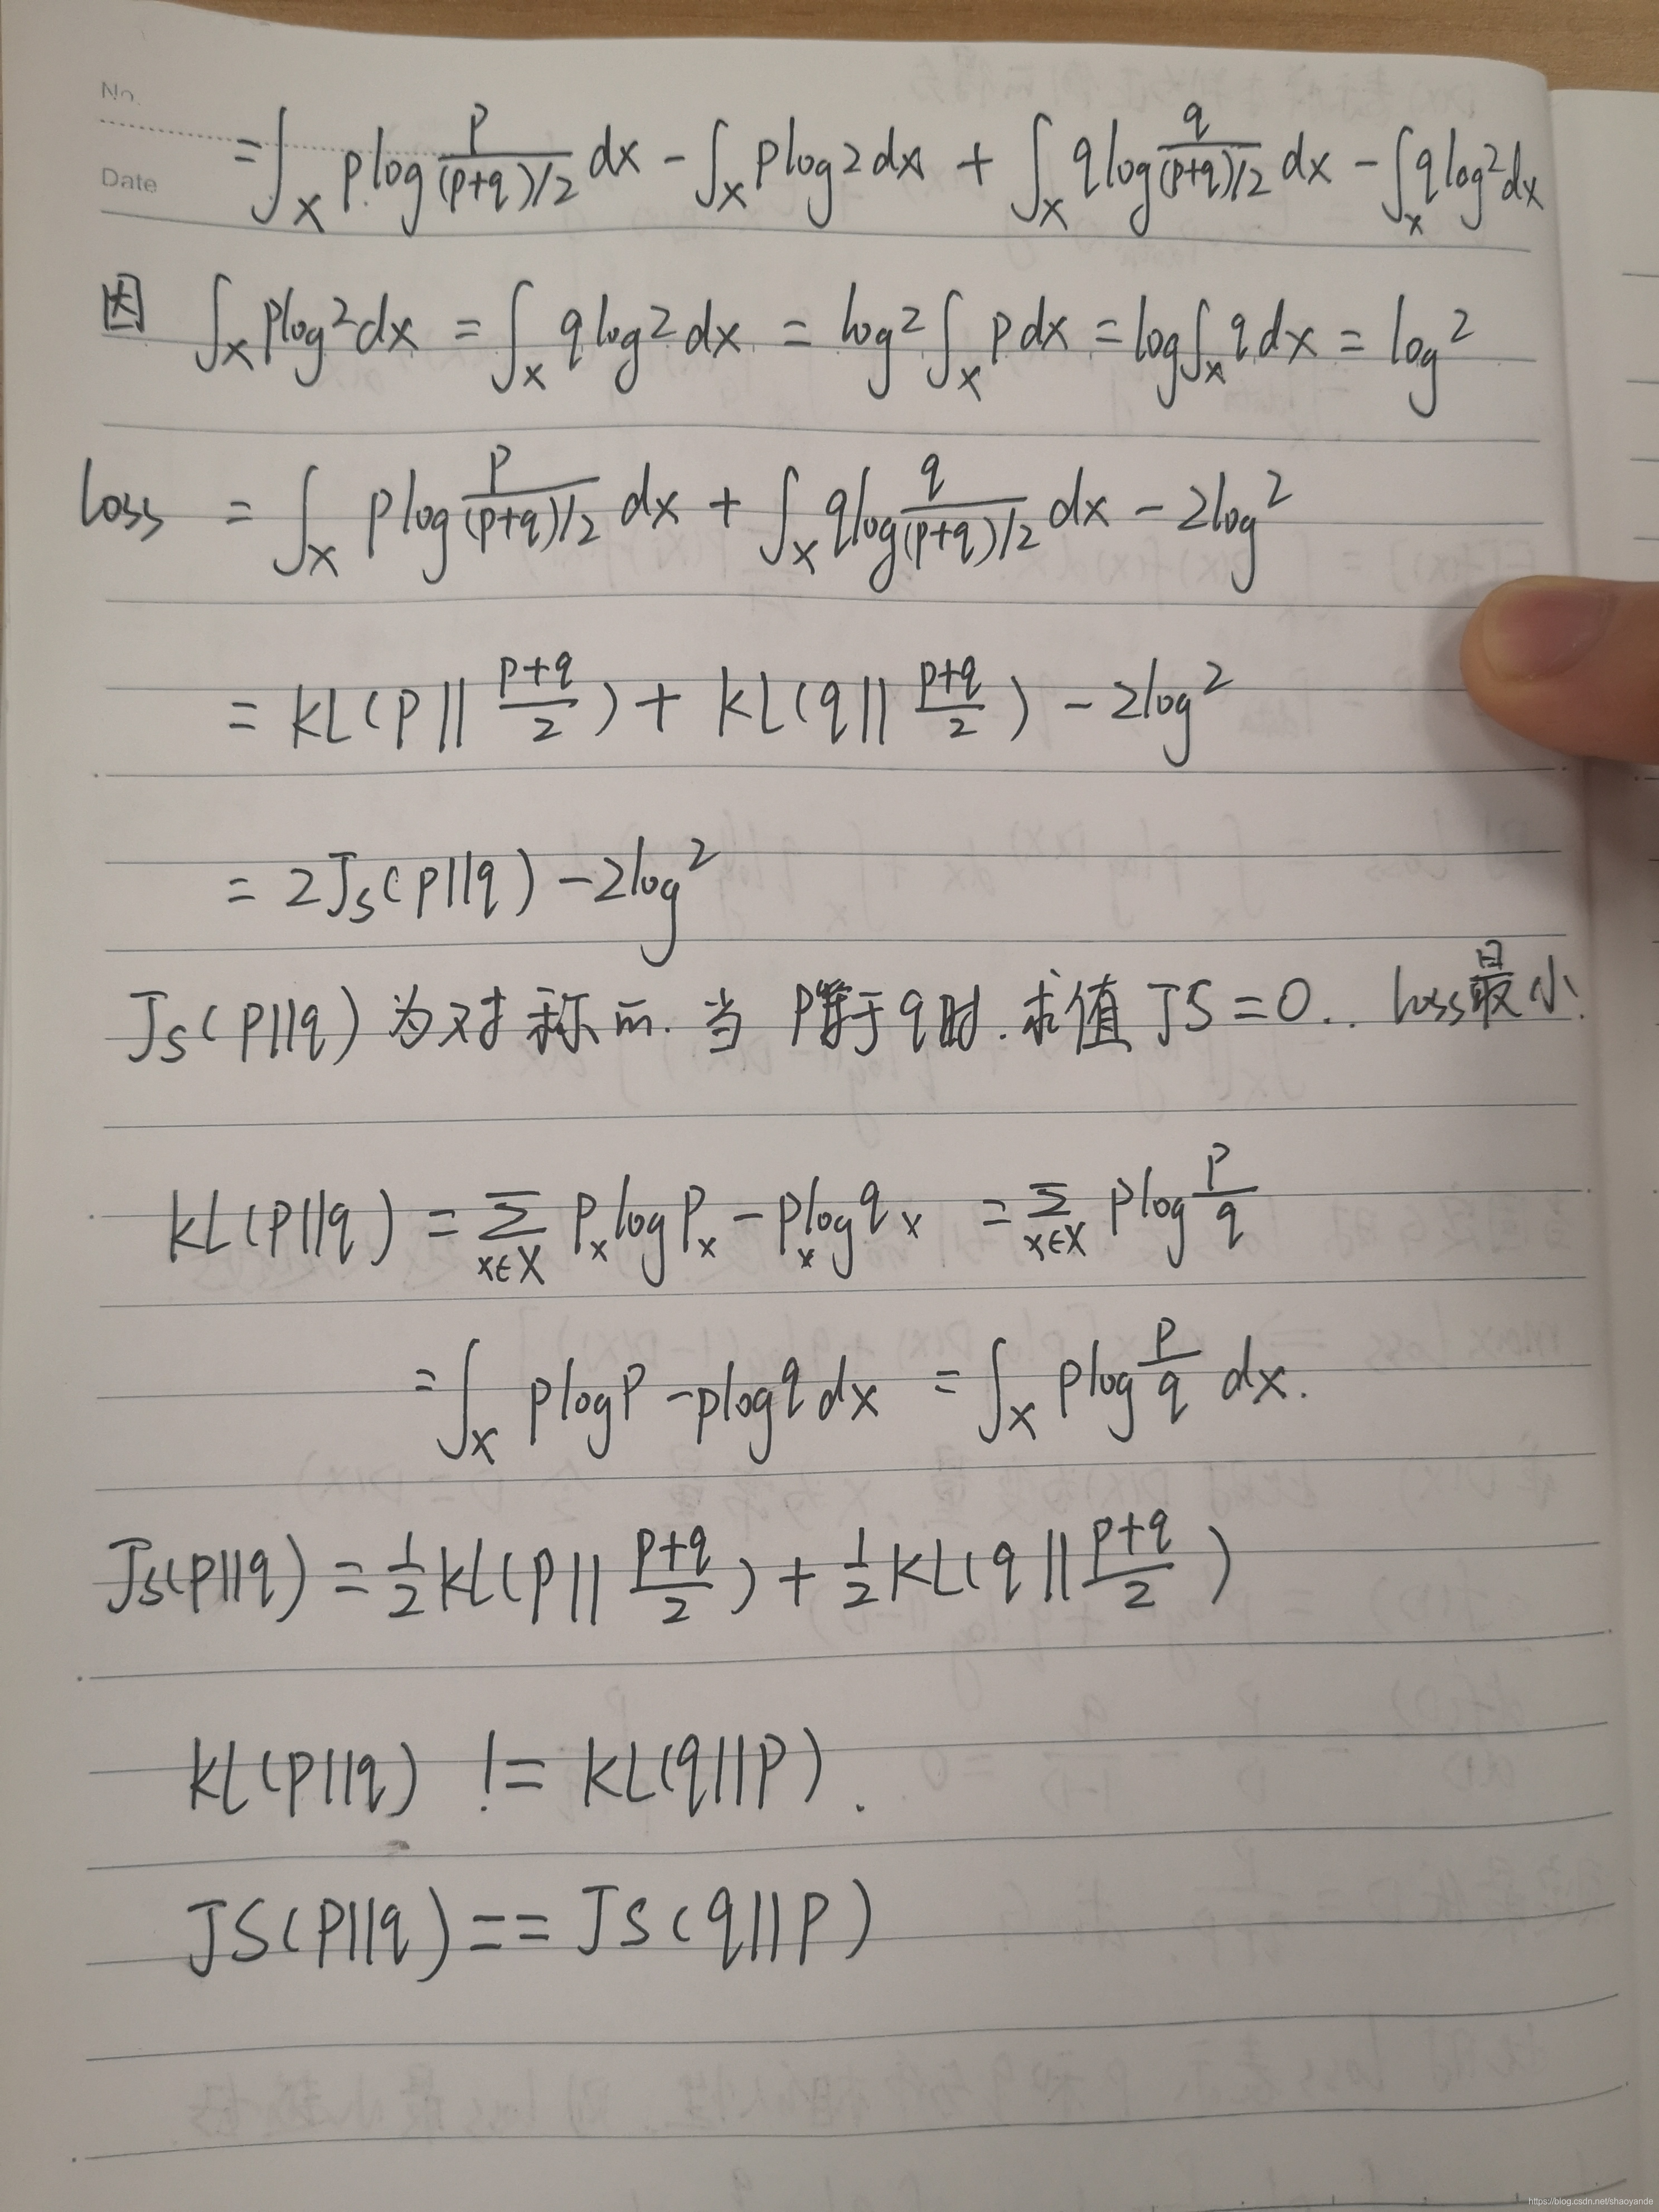 No.
Date
=∫_x p log p/((p+q)/2) dx - ∫_x p log2 dx + ∫_x q log q/((p+q)/2) dx - ∫_x q log2 dx
因 ∫_x p log2 dx = ∫_x q log2 dx = log2 ∫_x p dx = log∫_x q dx = log2
loss = ∫_x p log p/((p+q)/2) dx + ∫_x q log q/((p+q)/2) dx - 2log2
= KL(p|| (p+q)/2 ) + KL(q|| (p+q)/2 ) - 2log2
= 2JS(p||q) - 2log2
JS(p||q) 为对称 . 当 p等于q时. 求值 JS=0.. loss最小.
KL(p||q) = Σ_{x∈X} p_x log p_x - p_x log q_x = Σ_{x∈X} p log p/q
= ∫_x p log p - p log q dx = ∫_x p log p/q dx.
JS(p||q) = 1/2 KL(p|| (p+q)/2 ) + 1/2 KL(q || (p+q)/2 )
KL(p||q) != KL(q||p).
JS(p||q) == JS(q||p)
https://blog.csdn.net/shaoyande